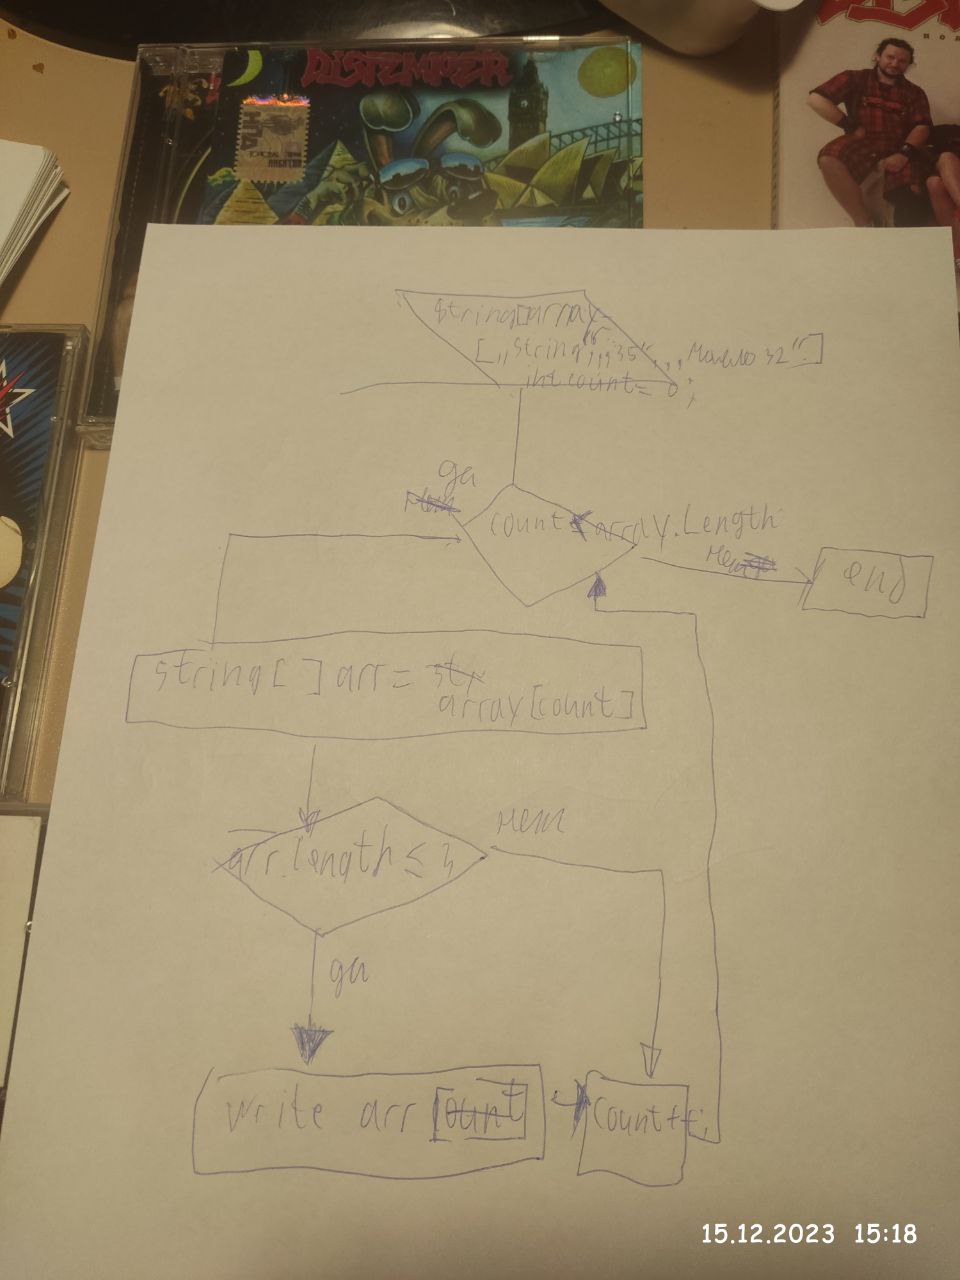 DISTEMPER
string[array=
[„string",„35",
int count= 0;
да
count < array.Length
нет
end
string[ ] arr =
array[count]
arr.length ≤ 3
нет
да
write arr [count
count++;
15.12.2023 15:18